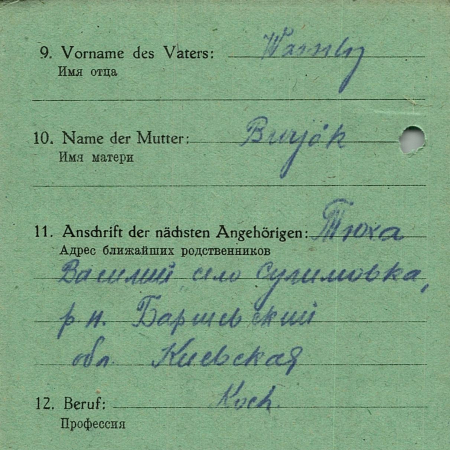 9. Vorname des Vaters: Wassily
Имя отца
10. Name der Mutter: Burjak
Имя матери
11. Anschrift der nächsten Angehörigen: Тюха
Адрес ближайших родственников
Василий село Сулимовка,
р н. Баршевский
обл Киевская
12. Beruf: Koch.
Профессия